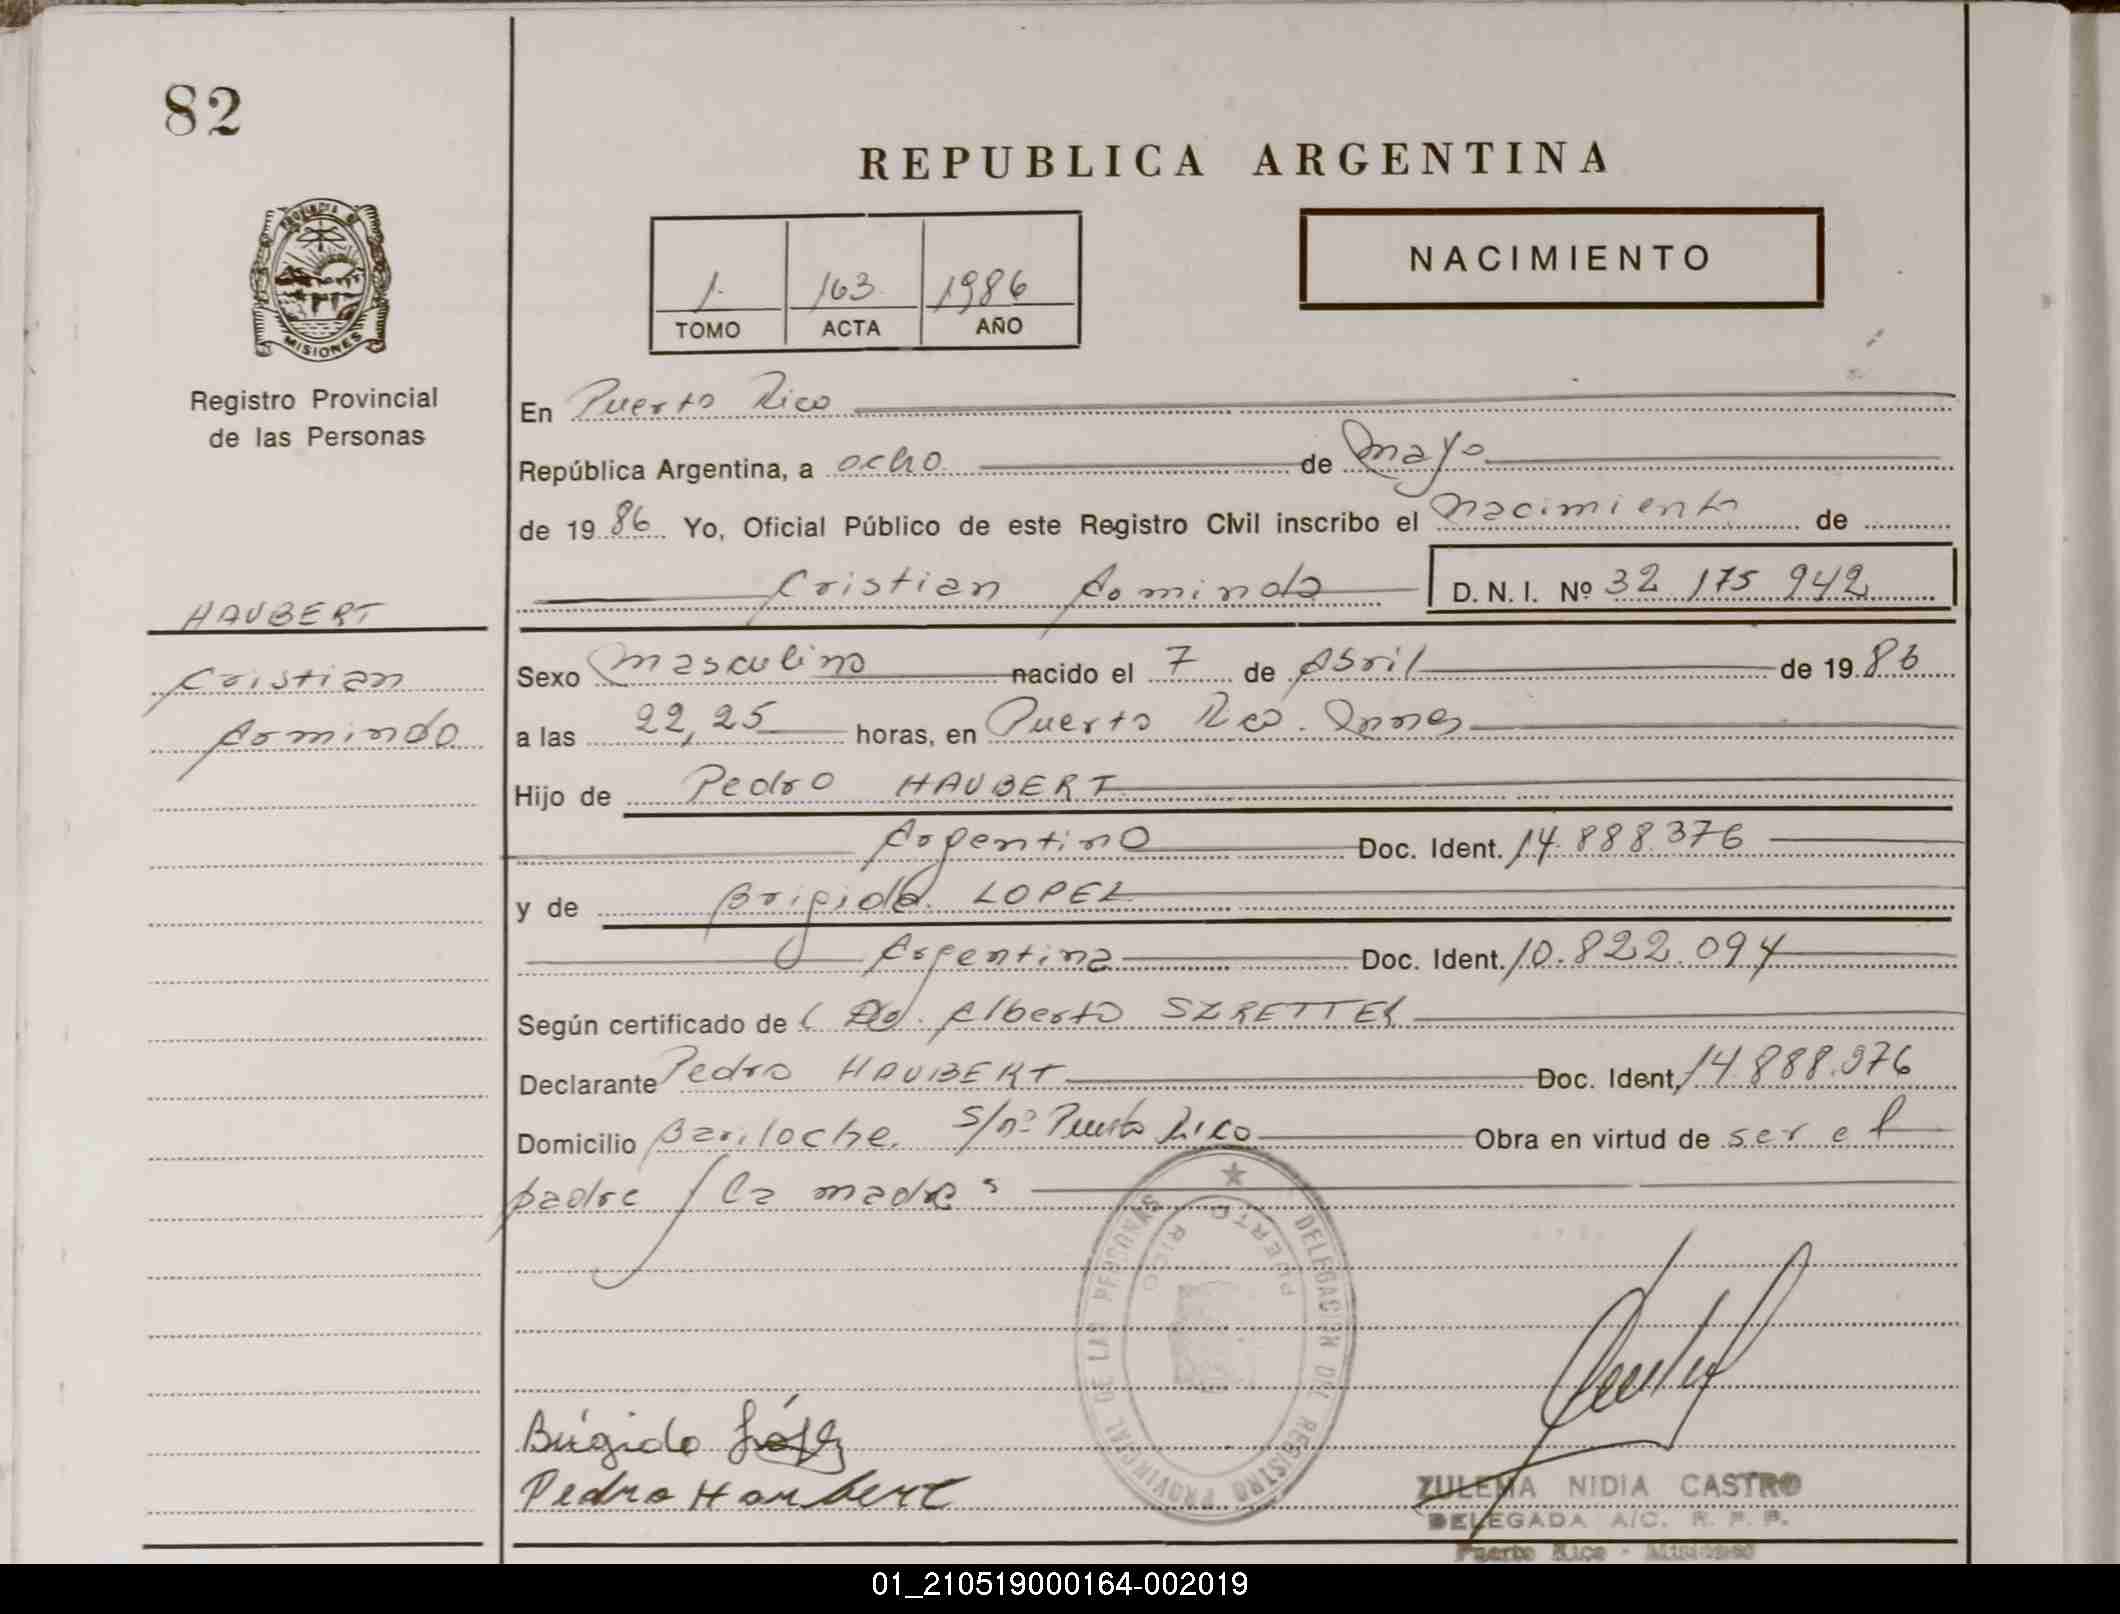 82
REPUBLICA ARGENTINA
NACIMIENTO
1. 163 1986
TOMO ACTA AÑO
PROVINCIA DE MISIONES
Registro Provincial
de las Personas
En Puerto Rico
República Argentina, a ocho de mayo
de 1986 Yo, Oficial Público de este Registro Civil inscribo el nacimiento de
Cristian Armindo D. N. I. Nº 32 175 942
HAUBERT
Cristian
Armindo
Sexo masculino nacido el 7 de Abril de 1986
a las 22,25 horas, en Puerto Rico.
Hijo de Pedro HAUBERT
Argentino Doc. Ident. 14.888.376
y de Brigida LOPEZ
Argentina Doc. Ident. 10.822.094
Según certificado de Alberto SZRETTER
Declarante Pedro HAUBERT Doc. Ident. 14.888.376
Domicilio Bariloche. s/nº Puerto Rico Obra en virtud de ser el
padre y la madre
DELEGACION DEL REGISTRO PROVINCIAL DE LAS PERSONAS
PUERTO RICO
Brígida López
Pedro Haubert
ZULEMA NIDIA CASTRO
DELEGADA A/C. R. P. P.
Puerto Rico - Misiones
01_210519000164-002019